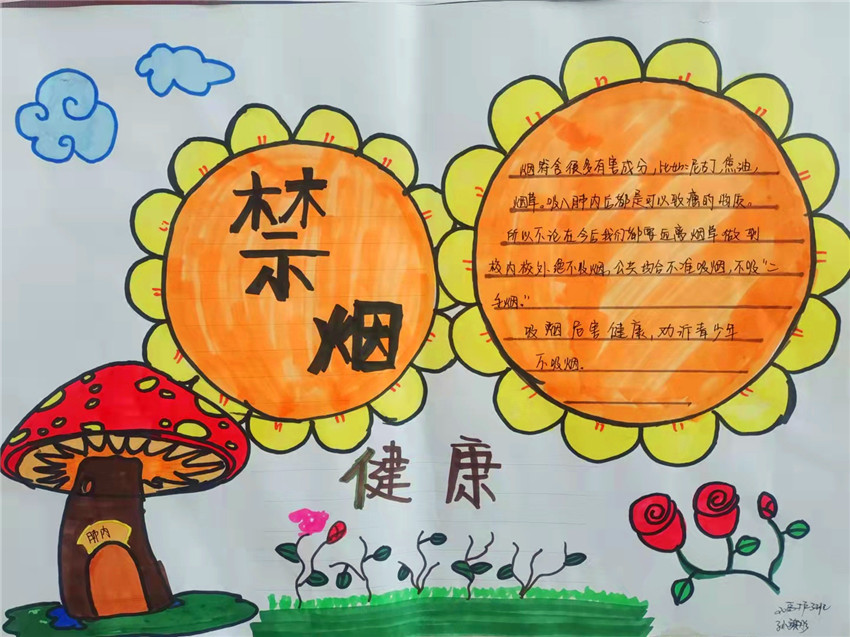 禁
烟
烟符含很多有害成分,比如:尼古丁焦油,
烟草。吸入肺内后都是可以致癌的物质。
所以不论在今后我们都要远离烟草做到
校内校外绝不吸烟,公共场合不准吸烟,不吸“二
手烟。”
吸烟危害健康,劝诉青少年
不吸烟.
健康
肺内